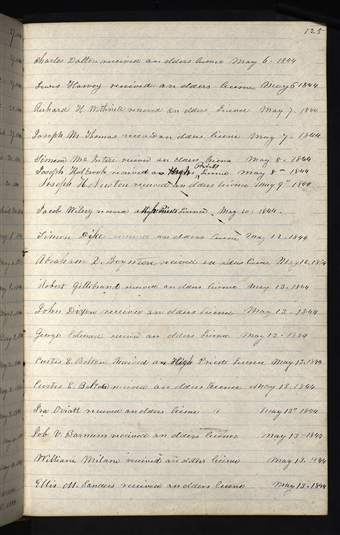 125
Charles Dalton received an elders licence May 6. 1844
Lewis Harvey received an elders licence May 6 1844
Richard H. received an elders licence May 7. 1844
Joseph M. Thomas received an elders licence May 7. 1844
Simeon an elders licence May 8. 1844
Joseph Holbrook received a High Priest licence May 8th 1844
Joseph H. Newton received an elders licence May 9th 1844
Jacob received a High Priests licence, May 10. 1844.
Simon Dike received an elders licence May 12. 1844
Abraham D. Boynton received an elders licence May 12. 1844
Robert Gillibrand received an elders licence May. 13. 1844
John Dixon received an elders licence May. 13. 1844
George Coleman an elders licence May 13. 1844
Curtis E. Bolton Received an High Priests licence May 13. 1844
Curtis E. Bolton received an elders licence May 13. 1844
Ira Oviatt received an elders licence May 13th 1844
Job V. Barnum received an elders licence May. 13 - 1844
William received an elders licence May 13. 1844
Ellis M. Sanders received an elders licence May 13. 1844